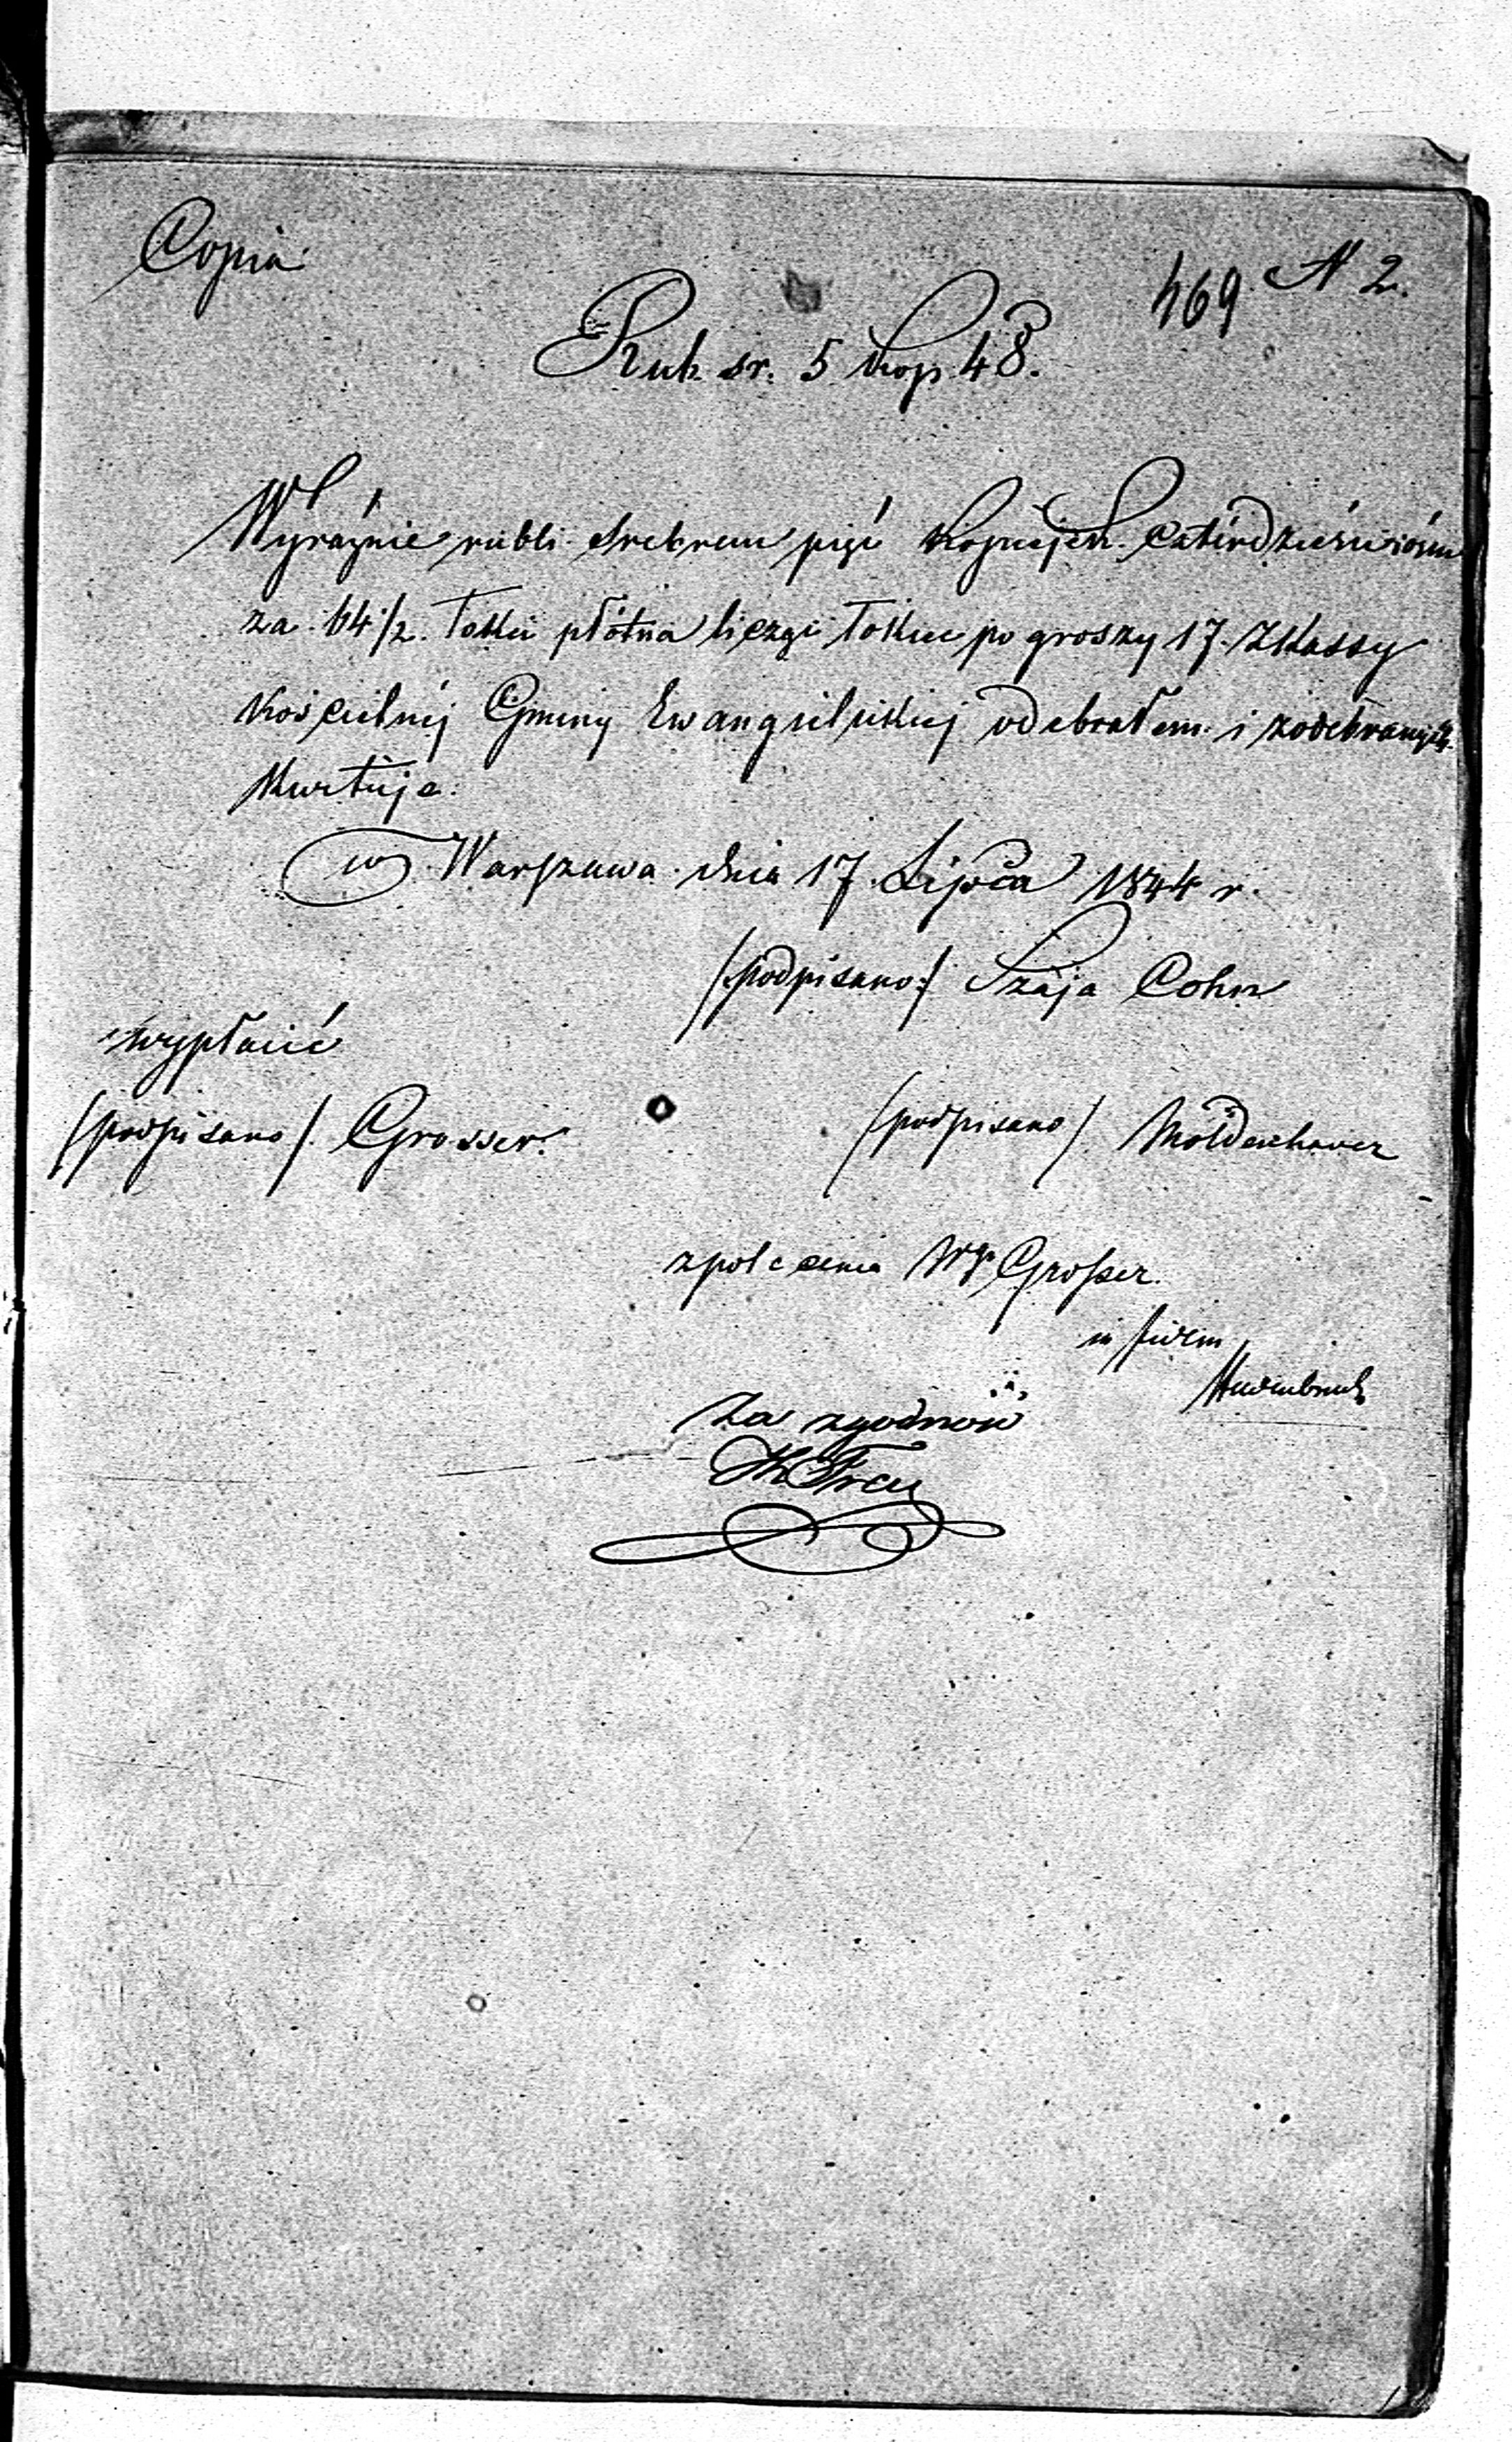 Copia
469 N 2.
Rub. sr. 5 kop 48.
Wyraźnie rubli srebrem pięć kopiejek czterdzieści ośm
za 64½ łokci płótna licząc łokiec po groszy 17. z Kassy
Kościelnéj Gminy Ewangielickiej odebrałem i z odebranych
kwituje.
w Warszawa dnia 17 Lipca 1844 r.
/podpisano:/ Szaja Cohn
wypłacić
/podpisano/ Grosser. /podpisano/ Moldenhawer
z polecenia Wgo Grosser.
in fidem
Za zgodność